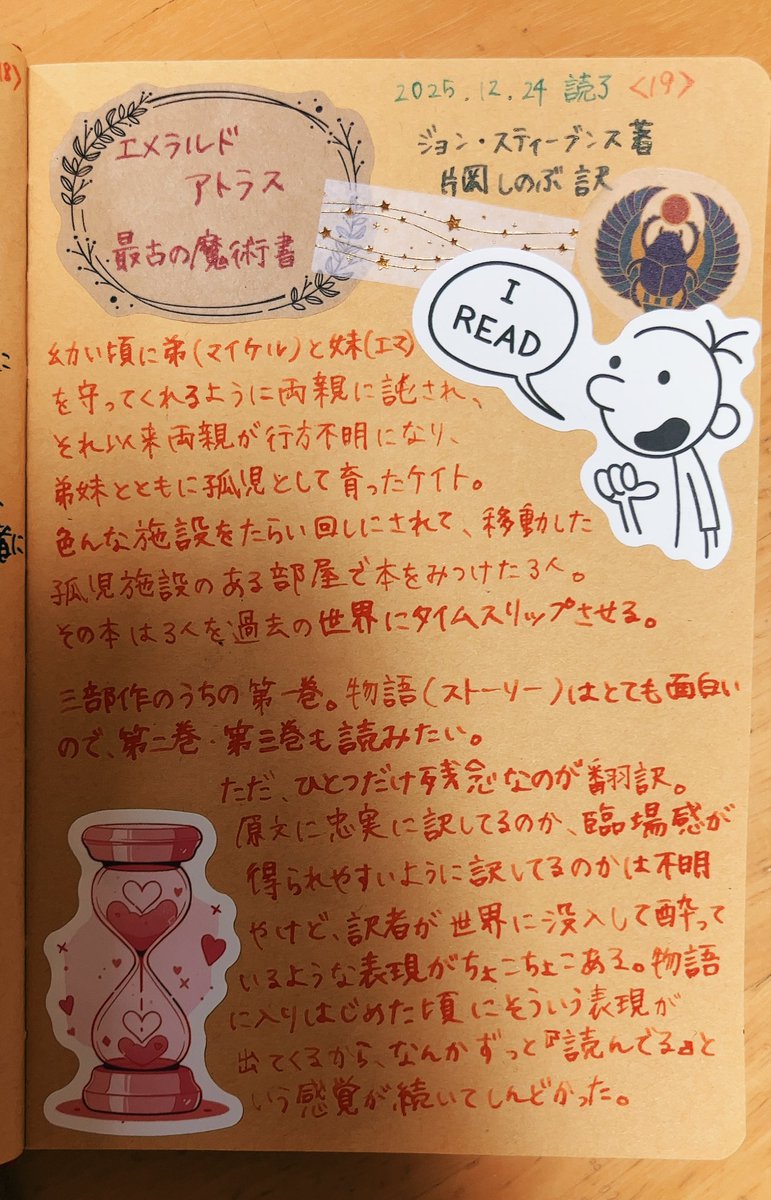 18>
2025.12.24 読了 <19>
エメラルド
アトラス
最古の魔術書
ジョン・スティーブンス著
片岡しのぶ訳
I
READ
幼い頃に弟(マイケル)と妹(エマ)
を守ってくれるように両親に託され、
それ以来両親が行方不明になり、
弟妹とともに孤児として育ったケイト。
色んな施設をたらい回しにされて、移動した
孤児施設のある部屋で本をみつけた3人。
その本は3人を過去の世界にタイムスリップさせる。
三部作のうちの第一巻。物語(ストーリー)はとても面白い
ので、第二巻・第三巻も読みたい。
ただ、ひとつだけ残念なのが翻訳。
原文に忠実に訳してるのか、臨場感が
得られやすいように訳してるのかは不明
やけど、訳者が世界に没入して酔って
いるような表現がちょこちょこある。物語
に入りはじめた頃にそういう表現が
出てくるから、なんかずっと『読んでる』と
いう感覚が続いてしんどかった。